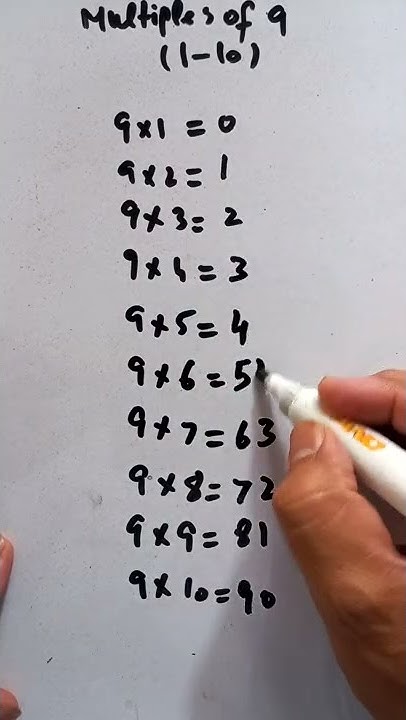 Multiples of 9
(1-10)
9×1 = 0
9×2 = 1
9×3 = 2
9×4 = 3
9×5 = 4
9×6 = 5
9×7 = 63
9×8 = 72
9×9 = 81
9×10 = 90